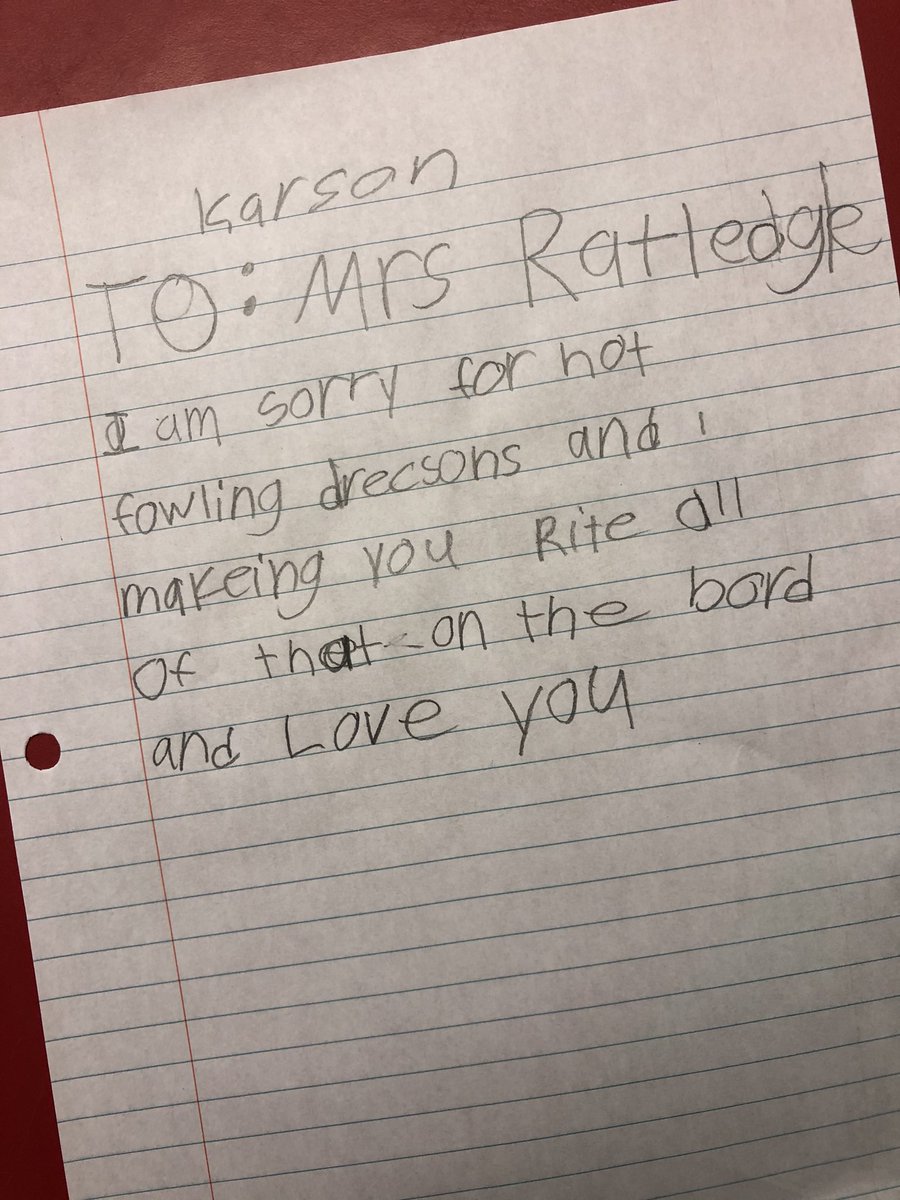 Karson
TO: Mrs Ratledge
I am sorry for not
fowling drecsons and i
makeing you Rite all
of that on the bord
and Love you